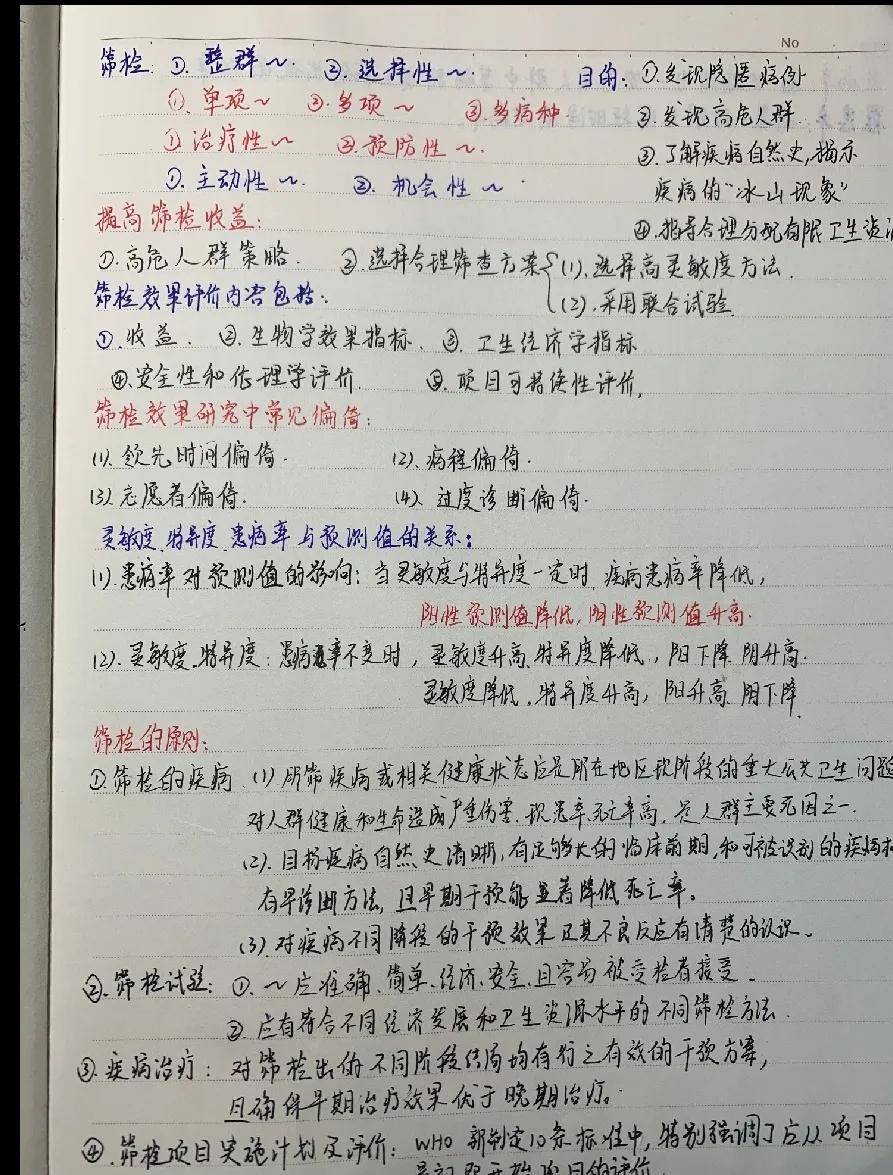 No
筛检. ①. 整群～. ②. 选择性～. 目的: ①.发现隐匿病例
①. 单项～ ②.多项～ ③.多病种 ②.发现高危人群.
① 治疗性～ ②.预防性～. ③.了解疾病自然史,揭示
①. 主动性～. ②. 机会性～ 疾病的“冰山现象”
提高筛检收益: ④.指导合理分配有限卫生资
①.高危人群策略. ②.选择合理筛查方案{(1).选择高灵敏度方法.
筛检效果评价内容包括: (2).采用联合试验.
①.收益. ②.生物学效果指标. ③.卫生经济学指标
④.安全性和伦理学评价. ⑤.项目可持续性评价,
筛检效果研究中常见偏倚:
(1).领先时间偏倚. (2).病程偏倚.
(3)志愿者偏倚. (4)、过度诊断偏倚.
灵敏度.特异度.患病率与预测值的关系:
(1).患病率对预测值的影响: 当灵敏度与特异度一定时,疾病患病率降低,
阳性预测值降低,阴性预测值升高.
(2).灵敏度.特异度: 患病率不变时,灵敏度升高.特异度降低,阳下降.阴升高.
灵敏度降低.特异度升高,阳升高.阴下降.
筛检的原则:
①.筛检的疾病.(1)所筛疾病或相关健康状态应是所在地区现阶段的重大公共卫生问题
对人群健康和生命造成严重伤害.现患率.死亡率高,是人群主要死因之一.
(2).目标疾病自然史清晰,有足够长的临床前期,和可被识别的疾病标
有早诊断方法,且早期干预能显著降低死亡率。
(3).对疾病不同阶段的干预效果及其不良反应有清楚的认识.
②.筛检试验: ①.～应准确、简单.经济.安全.且容易被受检者接受.
②.应有符合不同经济发展和卫生资源水平的不同筛检方法.
③.疾病治疗: 对筛检出的不同阶段结局均有行之有效的干预方案,
且确保早期治疗效果优于晚期治疗。
④.筛检项目实施计划及评价: WHO 新制定10条标准中,特别强调了应从项目
开始项目的评价.